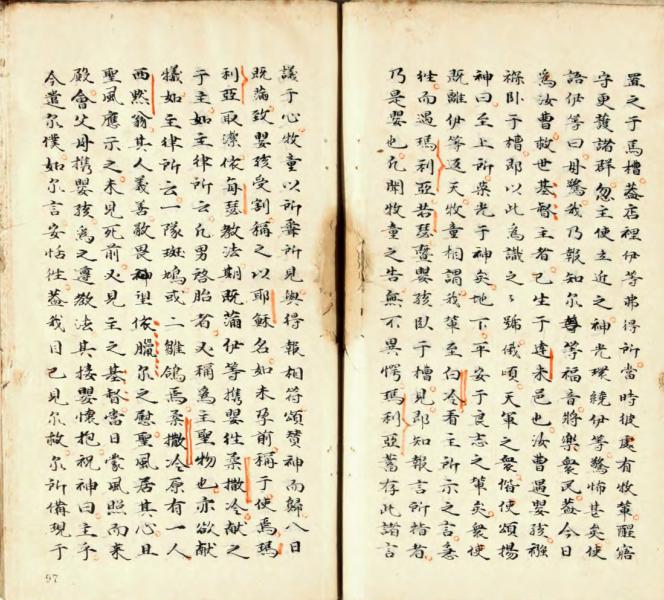 置之于馬槽葢店裡伊等弗得所當時彼處有牧輩醒寤
守更護諸群忽主使立近之神光環繞伊等驚怖甚矣使
語伊等曰毋驚我乃報知尔等福音將樂衆民葢今日
爲汝曹救世基督主者已生于達未邑也汝曹遇嬰孩襁
褓卧于槽即以此爲識之之號俄頃天軍之衆偕使頌揚
神曰至上所榮光于神矣地下平安于良志之輩矣衆使
既離伊等返天牧童相謂我輩至白冷看主所示之言急
徃而遇瑪利亞若瑟曁嬰孩臥于槽見即知報言所指者
乃是嬰也凢聞牧童之告無不異愕瑪利亞蓄存此諸言
議于心牧童以所聞所見與得報相符頌賛神而歸八日
既滿致嬰孩受割稱之以耶穌名如未孕前稱于使焉瑪
利亞取潔依每瑟教法期既滿伊等携嬰徃柔撒冷献之
于主如主律所云凢男啓胎者又稱爲主聖物也亦欲献
犠如主律所云一隊斑鳩或二雛鴿焉柔撒冷原有一人
西默翁其人義善敬畏神望依臘尔之慰聖風居其心且
聖風應示之未見死前又見主之基督當日蒙風照而来
殿會父母携嬰孩爲之遵教法其接嬰懷抱祝神曰主乎
今遣尔僕如尔言安恬徃葢我目已見尔救尔所備現于
97